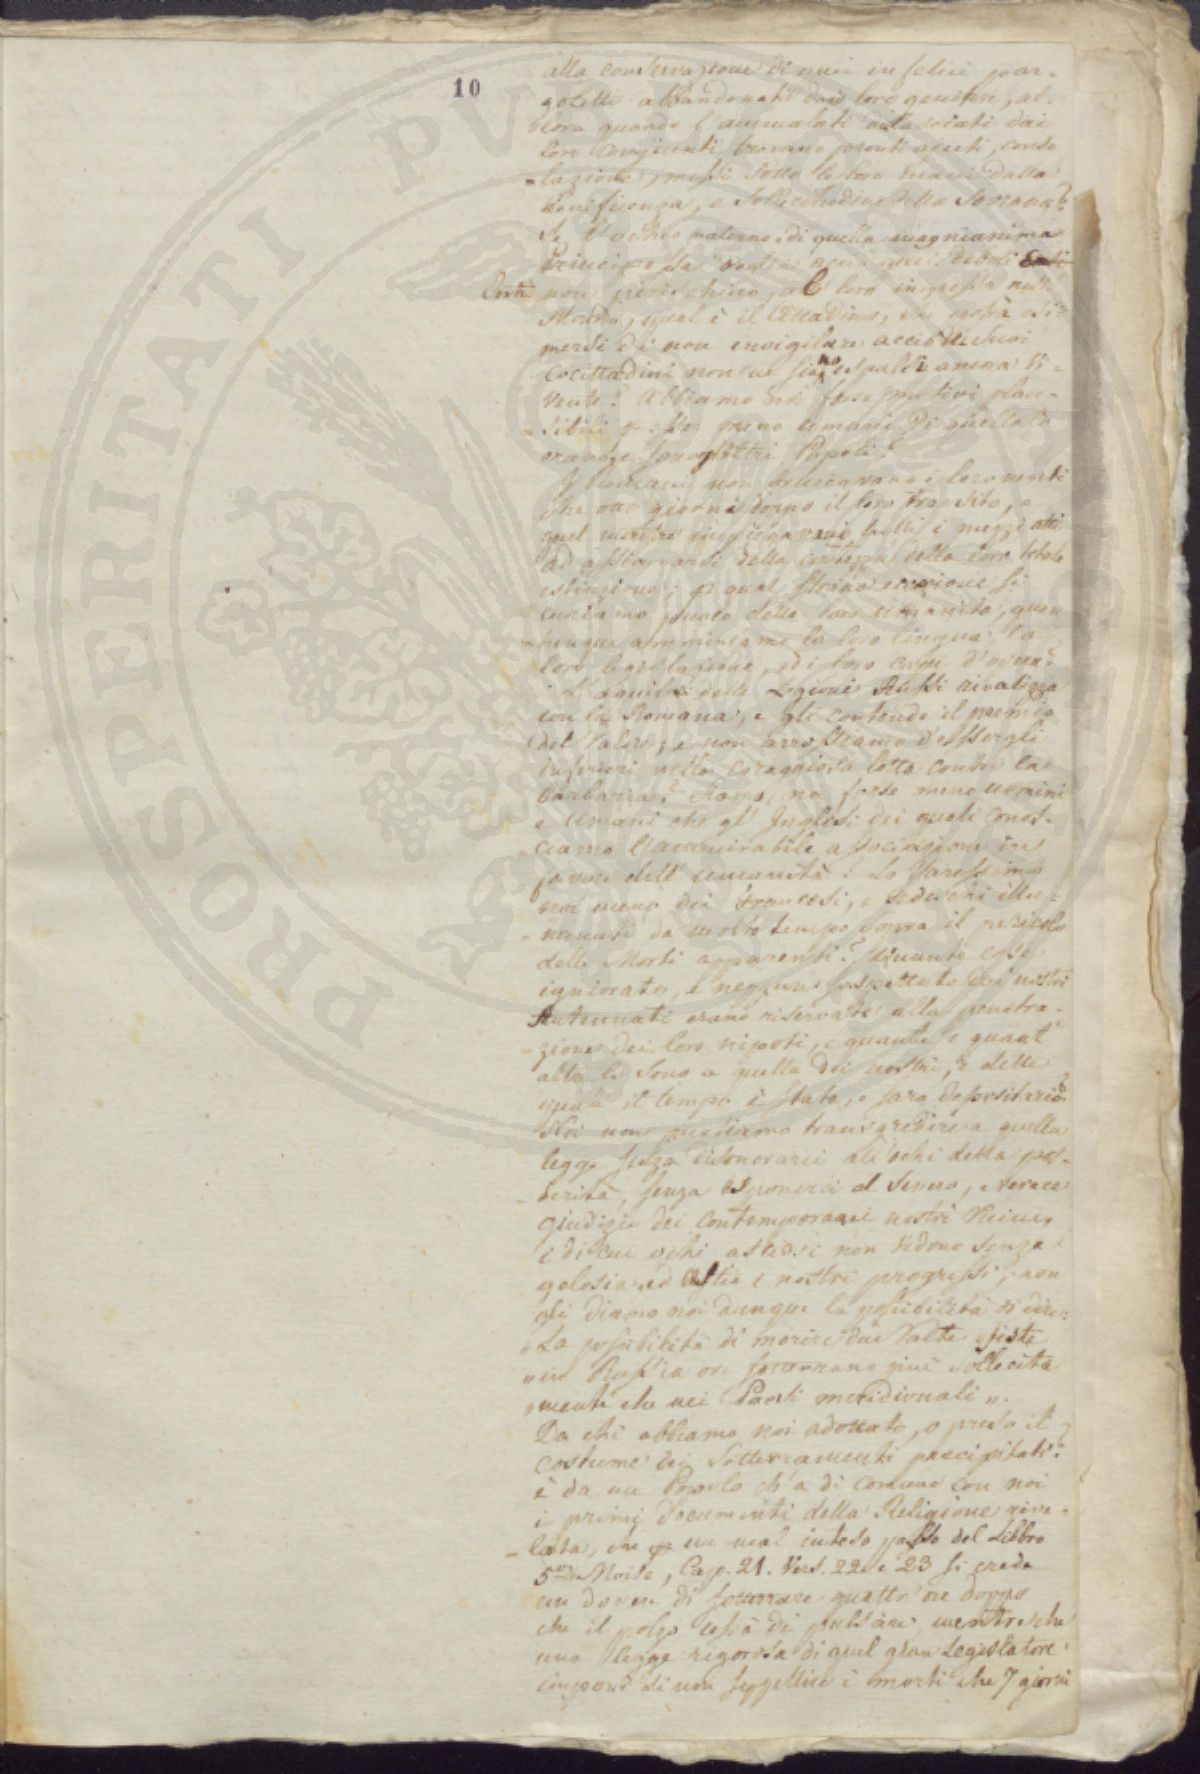 10
alla conservazione di quei infelici par-
goletti abbandonati dai loro genitori, al-
lora quando l'ammalati dai
loro congiunti trovano pronti ajuti, conso
-lazione, messi sotto le loro mani dalla
beneficenza, e sollecitudine della Sovrana?
Se l'ochio materno di quella magniunima
Principessa
Enti non perischino, al loro ingresso nell
Mondo, qual è il Cittadino, che potrà esi-
mersi di non invigilare acciò dei suoi
cocittadini non ne siano espulsi ancora vi-
vente? Abbiamo noi forse motivi plau-
-sibili p esser meno umani di quello lo
erano, e sono altri Popoli?
I Romani non bruciavano i loro morti
che otto giorni doppo il loro transito, e
quel mentre impiegavano tutti i mezzi atti
ad assicurarsi della certezza della loro totale
estinzione; p qual strana si
curiamo puoco della loro umanità, quan
-tunque ammiriamo la loro lingua, la
loro legislazione, ed i loro d'
L'aquila delle Legioni Russi rivalizza
con la Romana, e gli contende il premio
del valore, e non arrossiamo d'essergli
inferiori nella coraggiosa lotta contro la
barbaria? Siamo noi forse meno uomini
e umani che gl' Inglesi dei quali conos-
-ciamo l'ammirabile associazione in
favore dell' umanità? Lo saressimo
noi meno dei Francesi, e Tedeschi illu-
-minati da molto tempo sopra il pericolo
delle Morti apparenti? Quante cose
igniorate, e neppure sospettate dai nostri
Antennati erano riservate alla penetra-
-zione dei loro nipoti, e quante e quant'
altre lo sono a quella dei nostri, e delle
quale il tempo è stato, e sara depositario?
Noi non possiamo transgredire a quella
legge senza disonorarci ali ochi della pos-
-terità, senza esponerci al severo, e verace
giudizio dei contemporanei nostri Vicini,
e di cui ochi astiosi non vedono senza
gelosia, ed astio i nostri progressi; non
gli diamo noi dunque la possibilità di dire:
„La possibilità di morire due Volte esiste
„in Russia ove sotterrano più sollecita
„mente che nei Paesi meridionali„.
Da chi abbiamo noi adottato, o preso il
costume dei Sotterramenti precipitati?
è da un Popolo ch'a di comune con noi
i primi Documenti della Religione rive-
-lata, che p un mal inteso passo del Libbro
5to di Moisè, Cap. 21. Vers. 22 e 23 si crede
un dovere di sotterrare quattr' ore doppo
che il polzo cessà di pulsare, mentre che
una legge rigorosa di quel gran Legislatore
impone di non seppellire i morti che 7 giorni
PROSPERITATI PVBLICAE